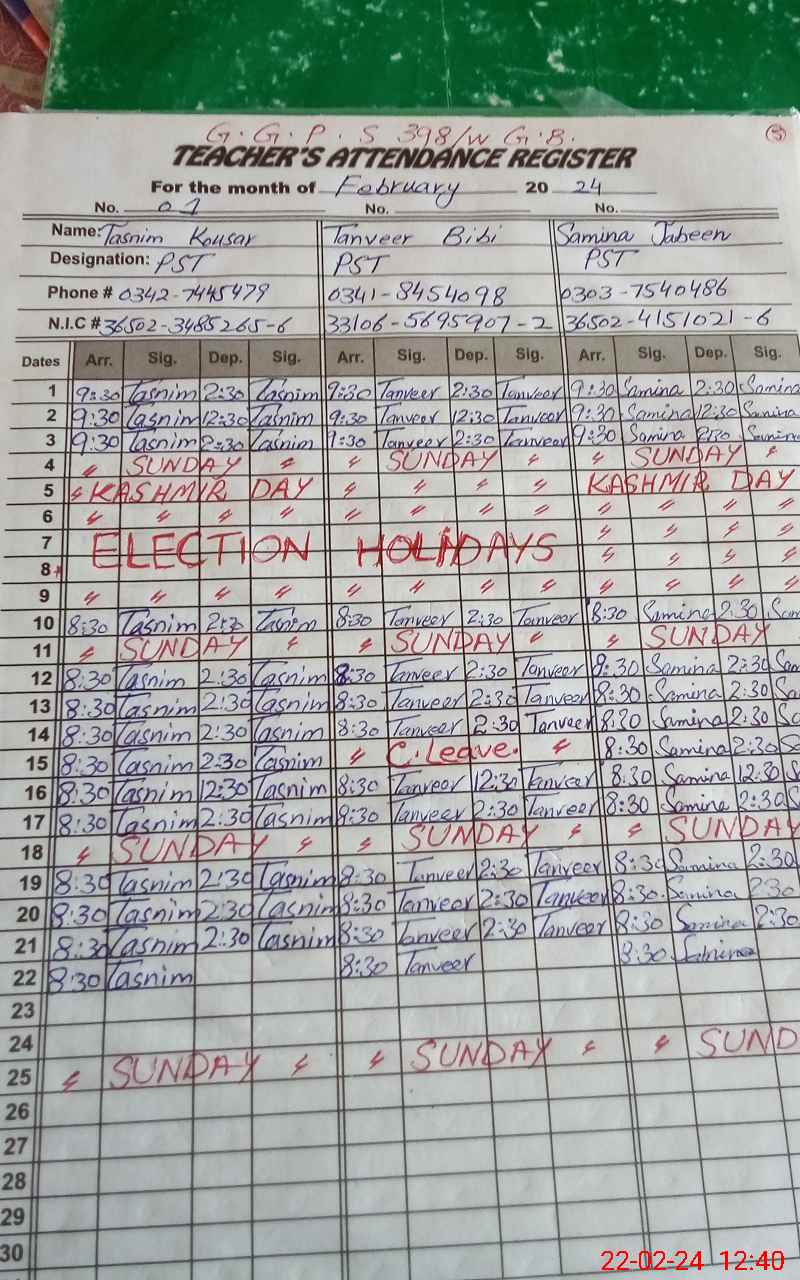 G.G.P.S 398/W G.B. 3
TEACHER'S ATTENDANCE REGISTER
For the month of February 20 24
No. 01 No. No.
Name: Tasnim Kousar Tanveer Bibi Samina Jabeen
Designation: PST PST PST
Phone # 0342-7445479 0341-8454098 0303-7540486
N.I.C # 36502-3485265-6 33106-5695907-2 36502-4151021-6
Dates Arr. Sig. Dep. Sig. Arr. Sig. Dep. Sig. Arr. Sig. Dep. Sig.
1 9:30 Tasnim 2:30 Tasnim 9:30 Tanveer 2:30 Tanveer 9:30 Samina 2:30 Samina
2 9:30 Tasnim 12:30 Tasnim 9:30 Tanveer 12:30 Tanveer 9:30 Samina 12:30 Samina
3 9:30 Tasnim 2:30 Tasnim 9:30 Tanveer 2:30 Tanveer 9:30 Samina 2:30 Samina
4 〃 SUNDAY 〃 〃 SUNDAY 〃 〃 SUNDAY 〃
5 〃 KASHMIR DAY 〃 〃 〃 〃 KASHMIR DAY
6 〃 〃 〃 〃 〃 〃 〃 〃 〃 〃 〃 〃
7 ELECTION HOLIDAYS 〃 〃 〃 〃
8 〃 〃 〃 〃
9 〃 〃 〃 〃 〃 〃 〃 〃 〃 〃 〃 〃
10 8:30 Tasnim 2:30 Tasnim 8:30 Tanveer 2:30 Tanveer 8:30 Samina 2:30 Sam
11 〃 SUNDAY 〃 〃 SUNDAY 〃 〃 SUNDAY
12 8:30 Tasnim 2:30 Tasnim 8:30 Tanveer 2:30 Tanveer 8:30 Samina 2:30 Sam
13 8:30 Tasnim 2:30 Tasnim 8:30 Tanveer 2:30 Tanveer 8:30 Samina 2:30 Sa
14 8:30 Tasnim 2:30 Tasnim 8:30 Tanveer 2:30 Tanveer 8:30 Samina 2:30 Sa
15 8:30 Tasnim 2:30 Tasnim 〃 C.Leave. 〃 8:30 Samina 2:30 S
16 8:30 Tasnim 12:30 Tasnim 8:30 Tanveer 12:30 Tanveer 8:30 Samina 12:30 S
17 8:30 Tasnim 2:30 Tasnim 8:30 Tanveer 2:30 Tanveer 8:30 Samina 2:30 S
18 〃 SUNDAY 〃 〃 SUNDAY 〃 〃 SUNDAY
19 8:30 Tasnim 2:30 Tasnim 8:30 Tanveer 2:30 Tanveer 8:30 Samina 2:30
20 8:30 Tasnim 2:30 Tasnim 8:30 Tanveer 2:30 Tanveer 8:30 Samina 2:30
21 8:30 Tasnim 2:30 Tasnim 8:30 Tanveer 2:30 Tanveer 8:30 Samina 2:30
22 8:30 Tasnim 8:30 Tanveer 8:30 Samina
23
24
25 〃 SUNDAY 〃 〃 SUNDAY 〃 〃 SUND
26
27
28
29
30
22-02-24 12:40